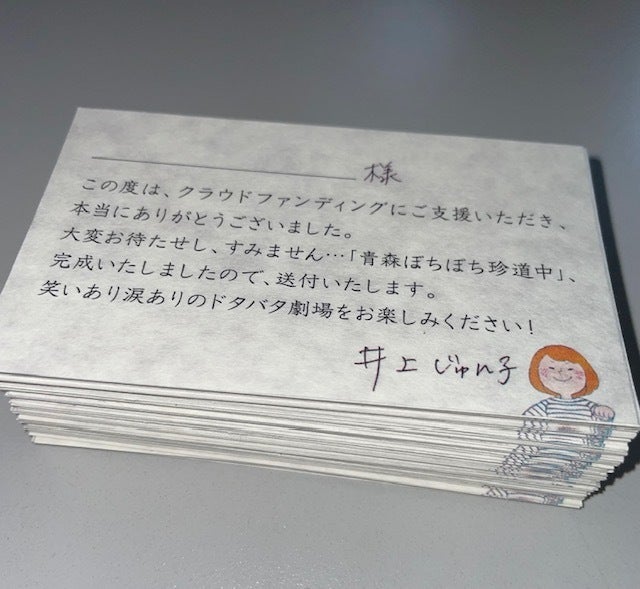 様
この度は、クラウドファンディングにご支援いただき、
本当にありがとうございました。
大変お待たせし、すみません…「青森ぼちぼち珍道中」、
完成いたしましたので、送付いたします。
笑いあり涙ありのドタバタ劇場をお楽しみください!
井上じゅん子